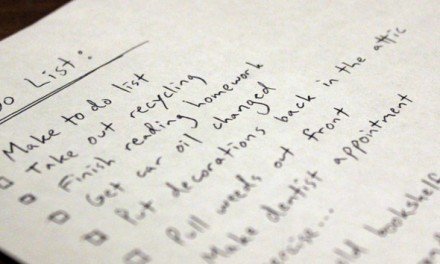 o List:
Make to do list
Take out recycling
Finish reading homework
Get car oil changed
Put decorations back in the attic
Pull weeds out front
Make dentist appointment
ercise...
ld bookshelf